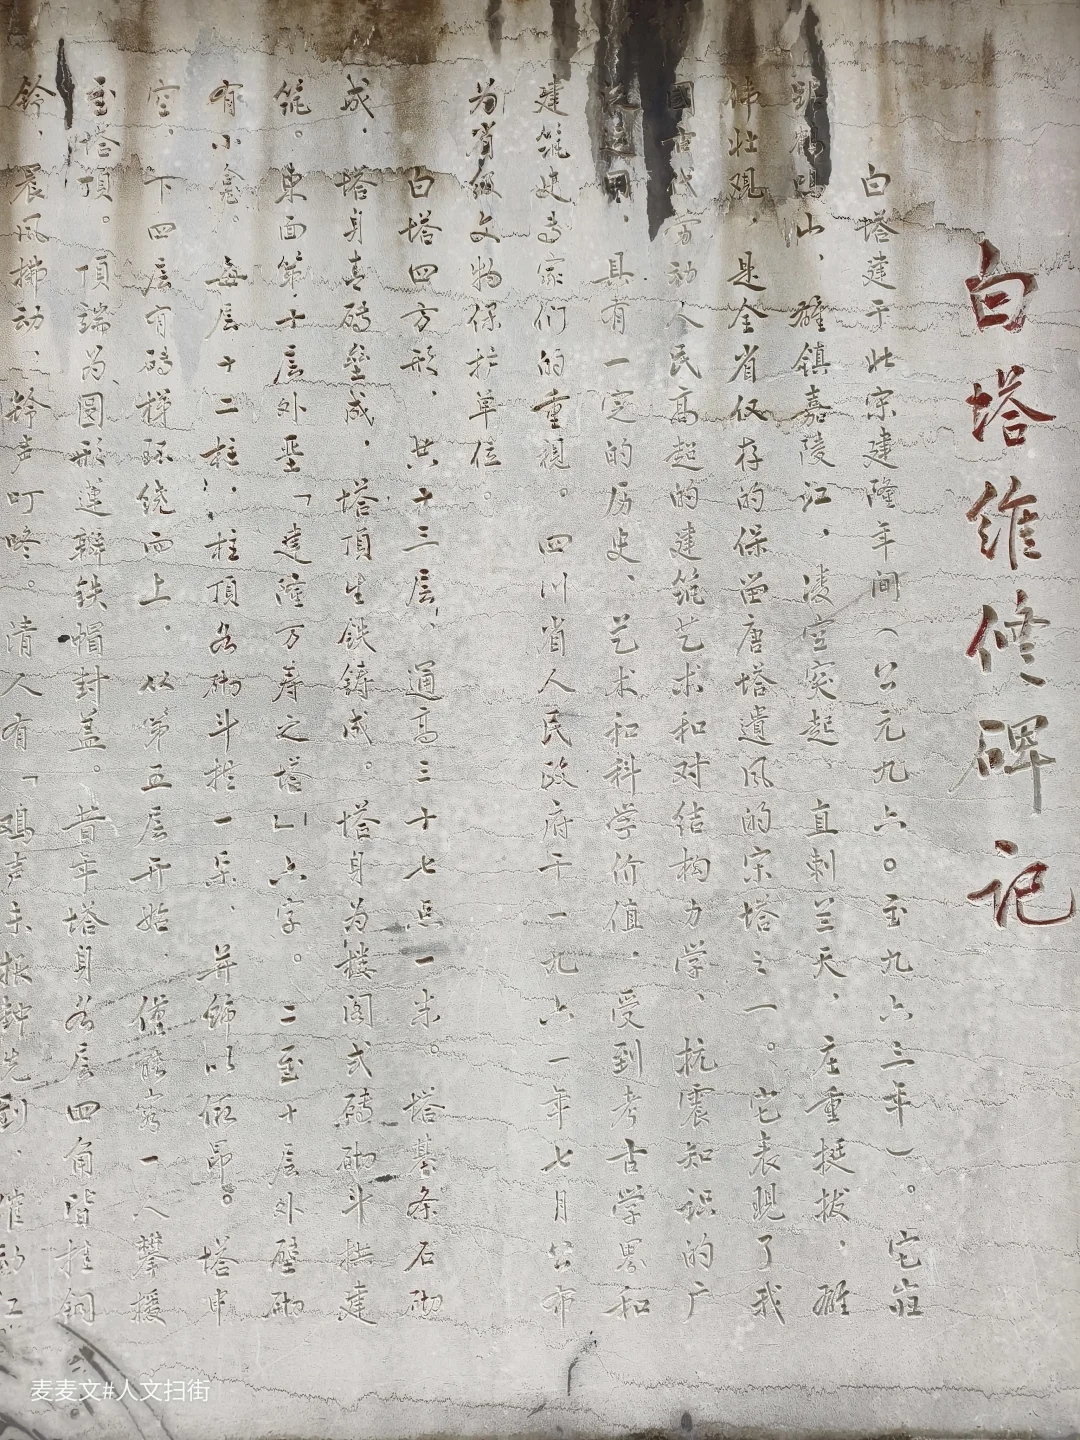 白塔维修碑记
白塔建于北宋建隆年间（公元九六〇至九六三年）。它雄
踞鹤鸣山，雄镇嘉陵江，凌空突起，直刺兰天，庄重挺拔，雄
伟壮观，是全省仅存的保留唐塔遺风的宋塔之一。它表现了我
國古代劳动人民高超的建筑艺术和对结构力学、抗震知识的广
泛运用，具有一定的历史、艺术和科学价值，受到考古学界和
建筑史专家们的重视。四川省人民政府于一九六一年七月公布
为省级文物保护单位。
白塔四方形，共十三层，通高三十七点一米。塔基条石砌
成，塔身青砖垒成，塔頂生铁鋳成。塔身为楼阁式砖砌斗拱建
筑。東面第十层外壁「建隆万寿之塔」六字。二至十层外壁砌
有小龛。每层十二柱，柱頂各砌斗拱一朵，并饰以依昂。塔中
空，下四层有砖梯环绕而上，从第五层开始，僅能容一人攀援
至塔頂。頂端为圆形莲瓣铁帽封盖。昔年塔身各层四角皆挂铜
鈴，晨风拂动，鈴声叮咚。清人有「鸡声未报钟先到，催动江
麦麦文#人文扫街